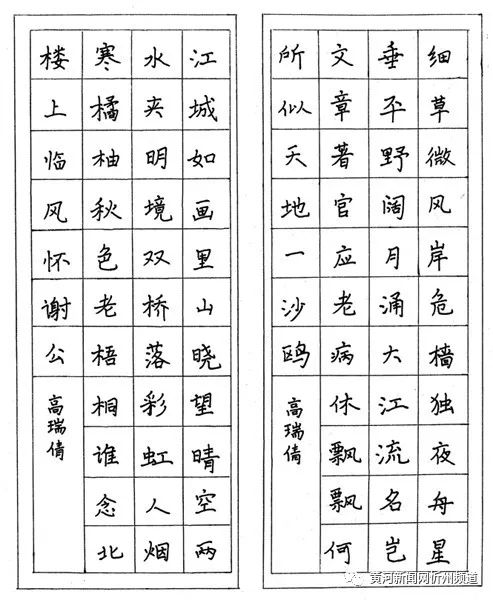 细草微风岸危樯独夜舟星
垂平野阔月涌大江流名岂
文章著官应老病休飘飘何
所似天地一沙鸥
高瑞倩
江城如画里山晓望晴空两
水夹明境双桥落彩虹人烟
寒橘柚秋色老梧桐谁念北
楼上临风怀谢公
高瑞倩
黄河新闻网忻州频道